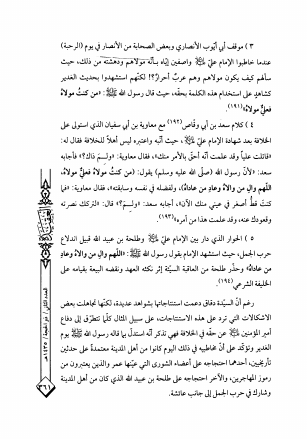 ٣ ) موقف أبي أيوب الأنصاري وبعض الصحابة من الأنصار في يوم (الرحبة)
عندما خاطبوا الإمام علي واصفين إيّاه بأنّه مولاهم ودهشته من ذلك، حيث
سألهم كيف يكون مولاهم وهم عربٌ أحرارٌ؟! لكنّهم استشهدوا بحديث الغدير
كشاهدٍ على استخدام هذه الكلمة بحقّه، حيث قال رسول الله: «من كنتُ مولاهُ
فعليٌّ مولاهُ»(١٩١).
٤ ) كلام سعد بن أبي وقّاص(١٩٢) مع معاوية بن أبي سفيان الذي استولى على
الخلافة بعد شهادة الإمام علي، حيث أنّبه واعتبره ليس أهلاً للخلافة فقال له:
«قاتلتَ علياً وقد علمتَ أنّه أحقّ بالأمر منك»، فقال معاوية: «ولِمَ ذاك؟» فأجابه
سعد: «لأنّ رسول الله (صلّى الله عليه وسلم) يقول: (من كنتُ مولاهُ فعليٌّ مولاهُ،
اللّهم والِ من والاهُ وعادِ من عاداهُ)، ولفضله في نفسه وسابقته»، فقال معاوية: «فما
كنتَ قطُّ أصغر في عيني منك الآن»، أجابه سعد: «ولِمَ؟»، قال: «لتركك نصرته
وقعودك عنه، وقد علمتَ هذا من أمره»(١٩٣).
٥ ) الحوار الذي دار بين الإمام علي وطلحة بن عبيد الله قبيل اندلاع
حرب الجمل، حيث استشهد الإمام بقول رسول الله: «اللّهم والِ من والاهُ وعادِ
من عاداهُ» وحذّر طلحة من العاقبة السيّئة إثر نكثه العهد ونقضه البيعة بقيامه على
الخليفة الشرعي(١٩٤)
رغم أنّ السيّدة دقاق دعمت استنتاجاتها بشواهد عديدة، لكنّها تجاهلت بعض
الاشكالات التي ترد على هذه الاستنتاجات، على سبيل المثال كلّما تتطرّق إلى دفاع
أمير المؤمنين عن حقّه في الخلافة فهي تذكر أنّه استدلّ بما قاله رسول الله يوم
الغدير وتؤكّد على أنّ مخاطبيه في ذلك اليوم كانوا من أهل المدينة معتمدةً على حدثين
تأريخيين، أحدهما احتجاجه على أعضاء الشورى التي عيّنها عمر والذين كانوا من
رموز المهاجرين، والآخر احتجاجه على طلحة بن عبيد الله الذي كان من أهل المدينة
وشارك في حرب الجمل إلى جانب عائشة.
العدد الثاني / ذو الحجة / ١٤٣٥ هـ
٣٦١